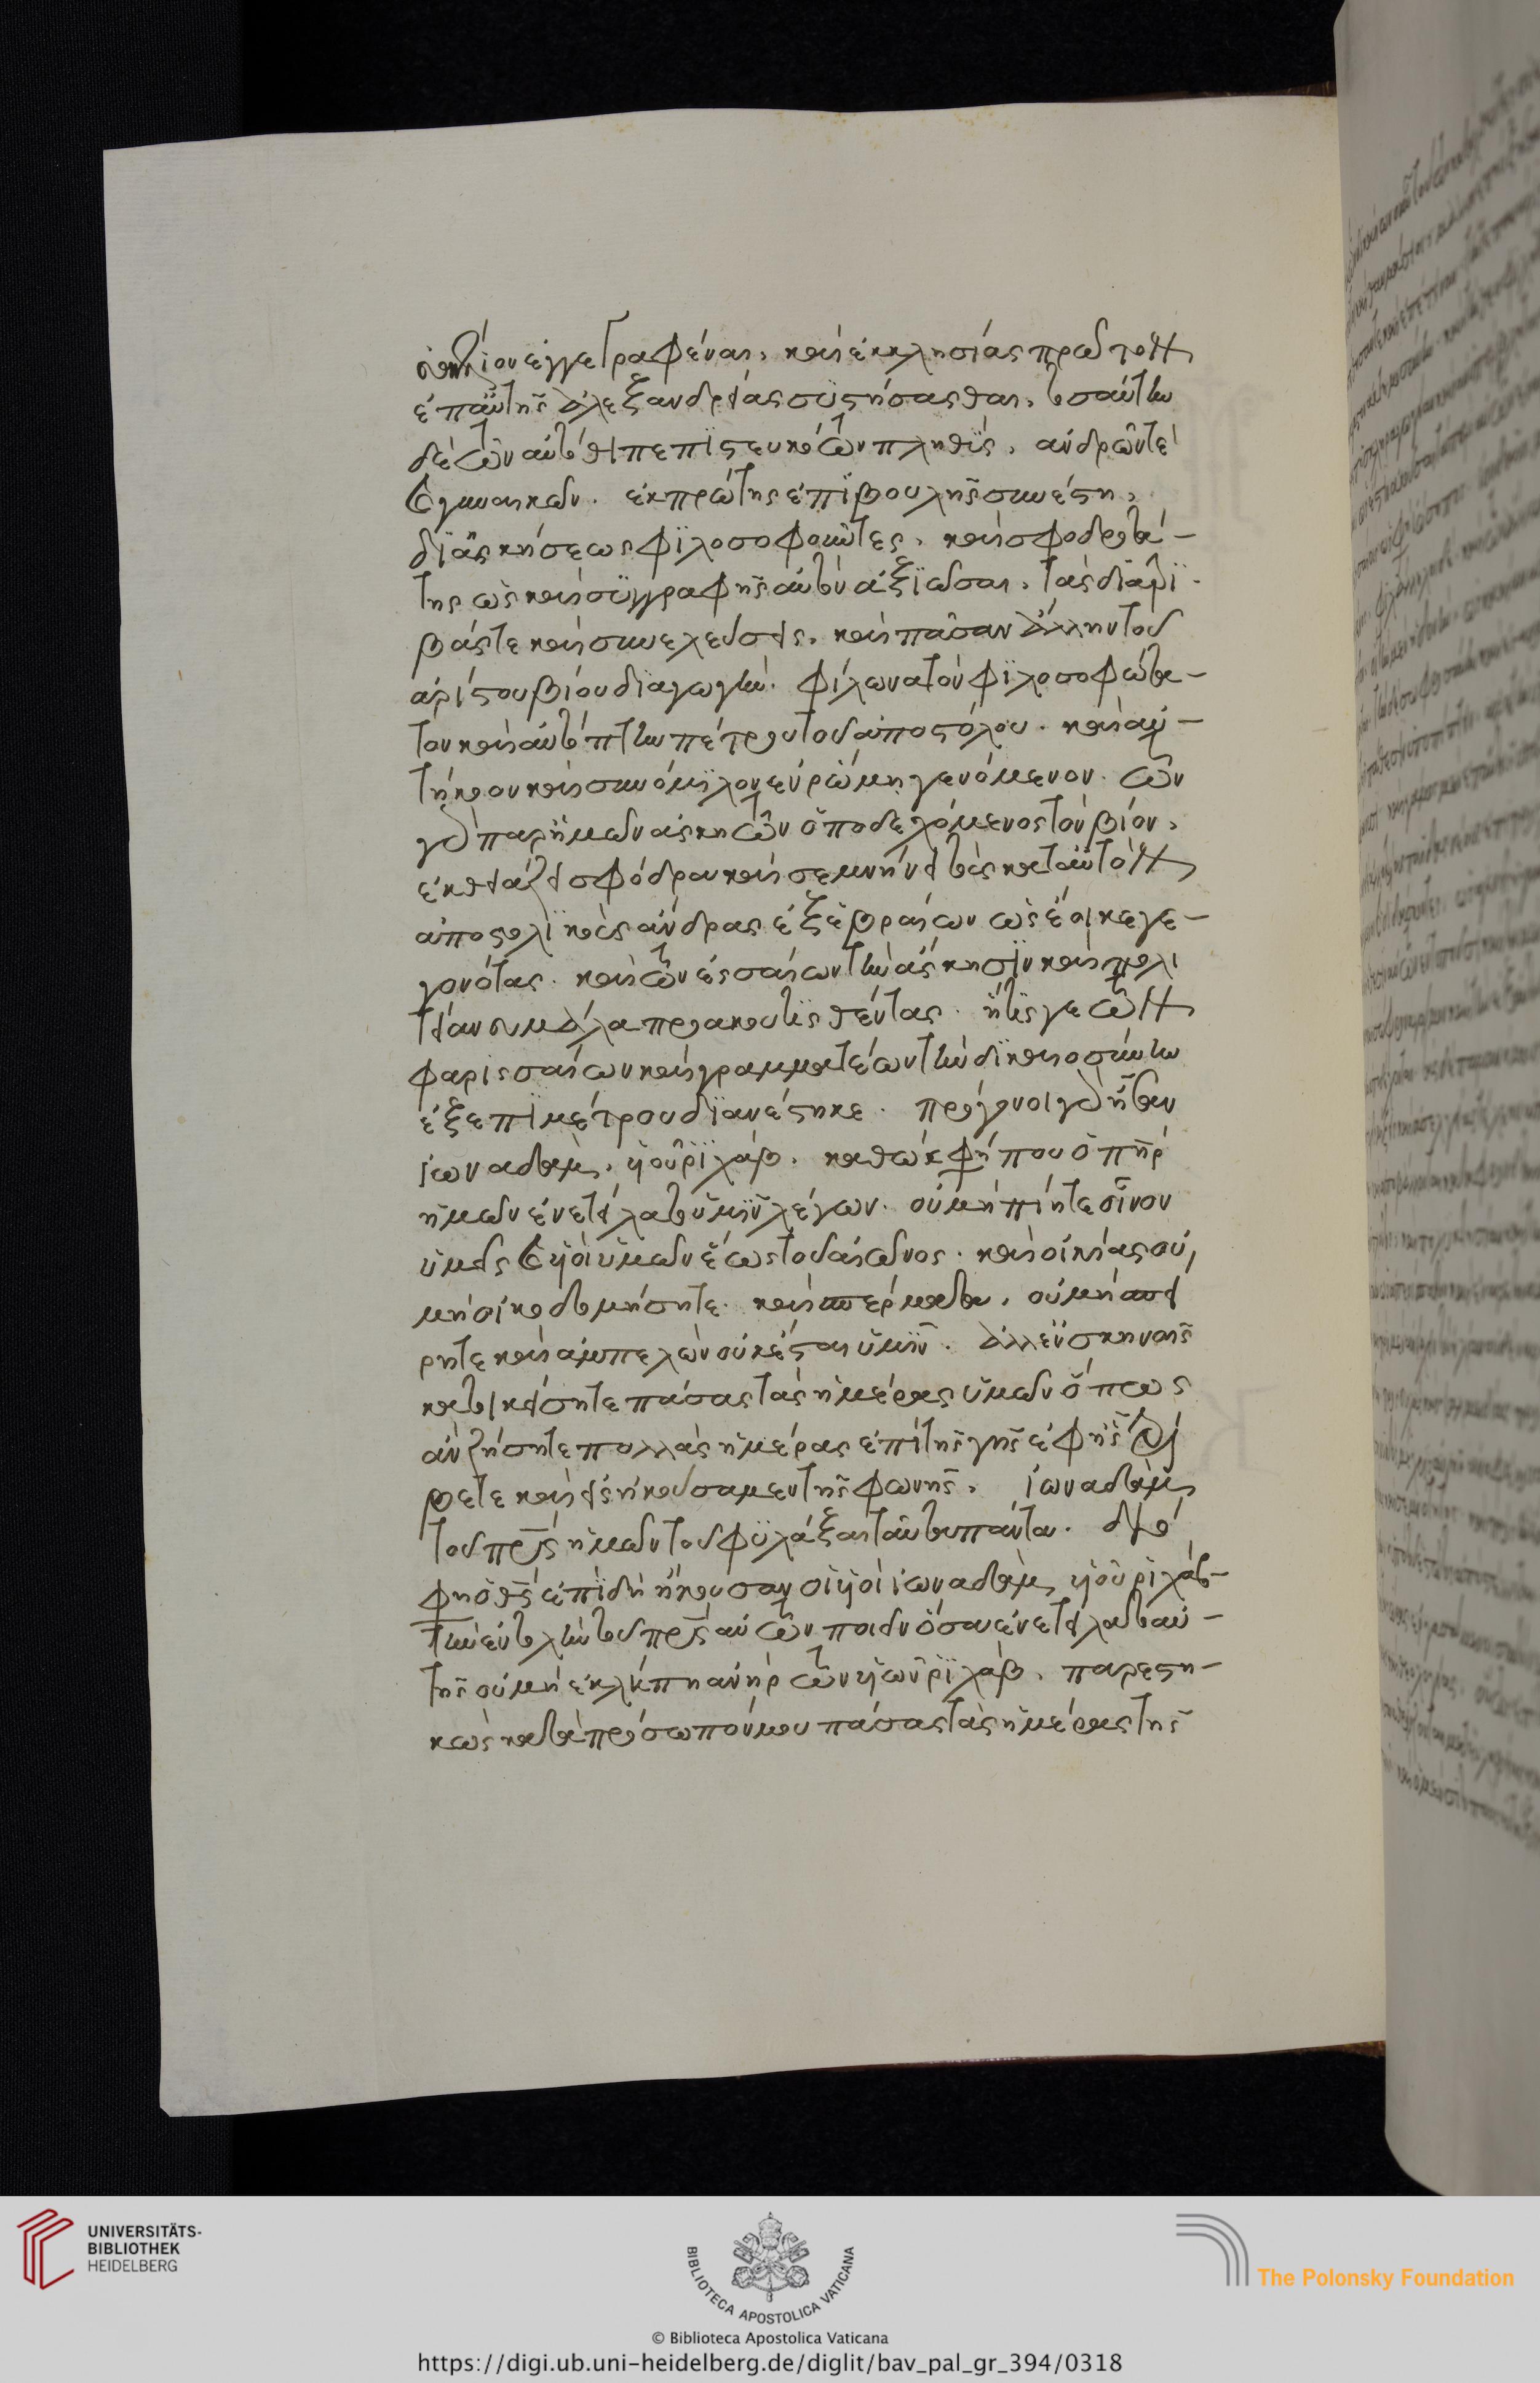 ἀγγέλιον ἐγγεγραφέναι, καὶ ἐκκλησίας πρῶτον
ἐπ' αὐτῆς ἀλεξανδρείας συστήσασθαι, τοσαύτην
δὲ τῶν αὐτόθι πεπιστευκότων πληθὺς, ἀνδρῶν τε
καὶ γυναικῶν. ἐκ πρώτης ἐπιβουλῆς συνέστη,
δι' ἀσκήσεως φιλοσοφοῦντες, καὶ σφοδροτά-
της ὡς καὶ συγγραφῆς αὐτὸν ἀξιῶσαι, τὰς διατρι-
βάς τε καὶ συνελεύσεις, καὶ πᾶσαν ἄλλην τοῦ
ἀρίστου βίου διαγωγήν. φίλωνα τὸν φιλοσοφώτα-
τον καὶ αὐτόπτην πέτρου τοῦ ἀποστόλου. καὶ αὐ-
τήκοον καὶ συνόμιλον ἐν ῥώμῃ γενόμενον. ὧν
γὰρ παρ' ἡμῶν ἀσκητῶν ὑποδεχόμενος τὸν βίον,
ἐκθειάζει σφόδρα καὶ σεμνύνει τοὺς κατ' αὐτὸν
ἀποστολικοὺς ἄνδρας ἐξ ἑβραίων ὡς ἔοικε γε-
γονότας. καὶ τῶν ἐσσαίων τὴν ἄσκησιν καὶ πολι
τείαν οὐ μάλα προακουτισθέντας. ἥτις γε τῶν
φαρισσαίων καὶ γραμματέων τὴν δικαιοσύνην
ἐξ ἐπιμέτρου διανέστηκε. πρόγονοι γὰρ ἦσαν
ἰωναδὰμ, υἱοῦ ῥιχάβ. καθώς φησί που ὁ πηρ
ἡμῶν ἐνετείλατο ὑμῖν λέγων. οὐ μὴ πίητε οἶνον
ὑμεῖς καὶ υἱοὶ ὑμῶν ἕως τοῦ αἰῶνος. καὶ οἰκίας οὐ,
μὴ οἰκοδομήσητε. καὶ σπέρματα, οὐ μὴ σπεί
ρητε καὶ ἀμπελὼν οὐκ ἔσται ὑμῖν. ἀλλ' ἐν σκηναῖς
κατοικείσητε πάσας τὰς ἡμέρας ὑμῶν ὅπως
ἂν ζήσητε πολλὰς ἡμέρας ἐπὶ τῆς γῆς ἐφ' ἧς
καὶ εἰσηκούσαμεν τῆς φωνῆς. ἰωναδὰμ
τοῦ πρς ἡμῶν τοῦ φυλάξαι ταῦτα πάντα. διὸ
φησὶ ὁ θς ἐπειδὴ ἤκουσαν οἱ υἱοὶ ἰωναδὰμ υἱοῦ ῥιχάβ-
τὴν ἐντολὴν τοῦ πρς αὐτῶν ποιεῖν ὅσα ἐνετείλατο αὐ-
τοῖς οὐ μὴ ἐκλείπῃ ἀνὴρ τῶν υἱῶν ῥιχάβ. παρεστη-
κὼς κατὰ πρόσωπόν μου πάσας τὰς ἡμέρας τῆς
UNIVERSITÄTS-
BIBLIOTHEK
HEIDELBERG
BIBLIOTECA APOSTOLICA VATICANA
The Polonsky Foundation
© Biblioteca Apostolica Vaticana
https://digi.ub.uni-heidelberg.de/diglit/bav_pal_gr_394/0318